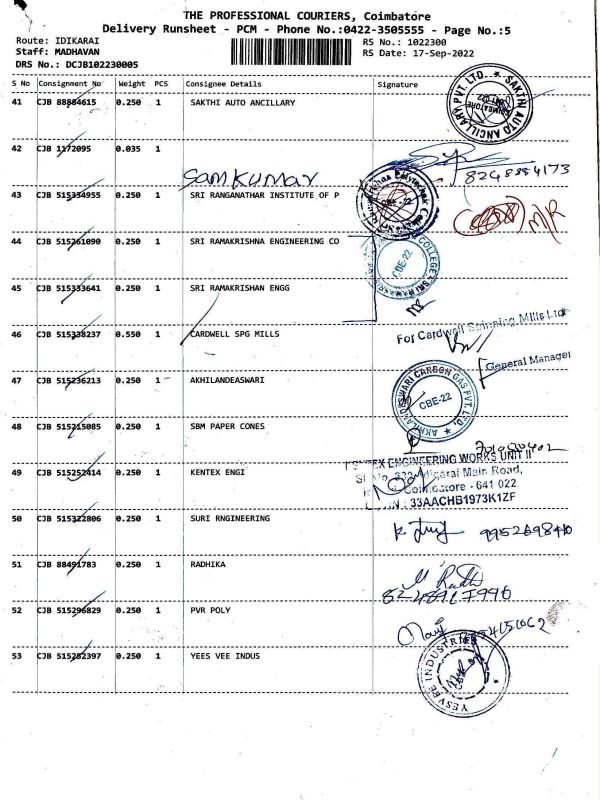 THE PROFESSIONAL COURIERS, Coimbatore
Delivery Runsheet - PCM - Phone No.:0422-3505555 - Page No.:5
Route: IDIKARAI
RS No.: 1022300
Staff: MADHAVAN
RS Date: 17-Sep-2022
DRS No.: DCJB102230005
S No Consignment No Weight PCS Consignee Details Signature
41 CJB 88884615 0.250 1 SAKTHI AUTO ANCILLARY
SAKTHI AUTO ANCILLARY PVT. LTD.
42 CJB 1172095 0.035 1
Samkumar
8248854173
43 CJB 515334955 0.250 1 SRI RANGANATHAR INSTITUTE OF P
CBE-22
M/R
44 CJB 515261090 0.250 1 SRI RAMAKRISHNA ENGINEERING CO
CBE-22
45 CJB 515333641 0.250 1 SRI RAMAKRISHAN ENGG
46 CJB 515338237 0.550 1 CARDWELL SPG MILLS
For Cardwell Spinning Mills Ltd
General Manager
47 CJB 515236213 0.250 1 AKHILANDEASWARI
AKHILANDESWARI CARBON GAS PVT. LTD.
CBE-22
48 CJB 515215085 0.250 1 SBM PAPER CONES
49 CJB 515252414 0.250 1 KENTEX ENGI
ENGINEERING WORKS UNIT II
Idigarai Main Road,
Coimbatore - 641 022
33AACHB1973K1ZF
50 CJB 515322806 0.250 1 SURI RNGINEERING
51 CJB 88491783 0.250 1 RADHIKA
52 CJB 515296829 0.250 1 PVR POLY
53 CJB 515282397 0.250 1 YEES VEE INDUS
YESVEE INDUSTRIES